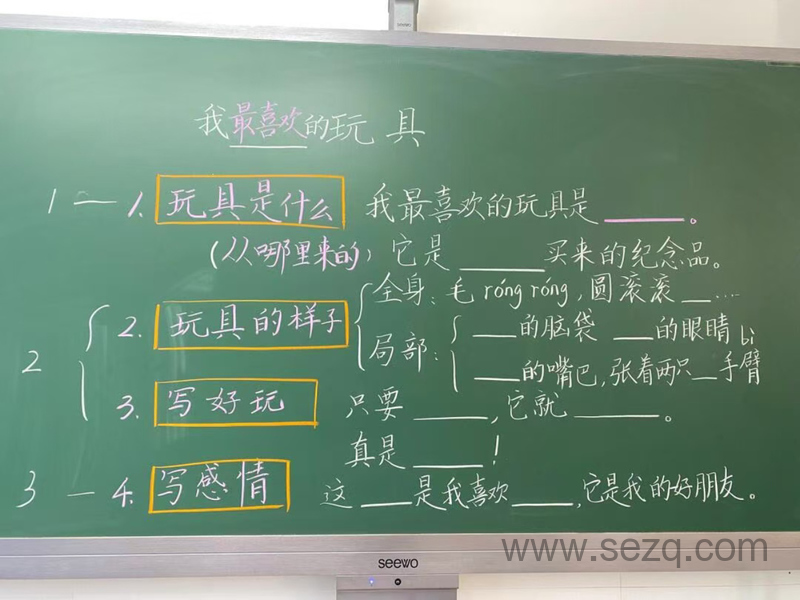 我最喜欢的玩具
1 — 1. 玩具是什么 我最喜欢的玩具是______。
(从哪里来的) 它是______买来的纪念品。
全身:毛róng róng,圆滚滚__…
2 2. 玩具的样子 局部: ___的脑袋 ___的眼睛
bì
___的嘴巴,张着两只__手臂
3. 写好玩 只要_____,它就______。
真是_____!
3 — 4. 写感情 这____是我喜欢_____,它是我的好朋友。
seewo
www.sezq.com